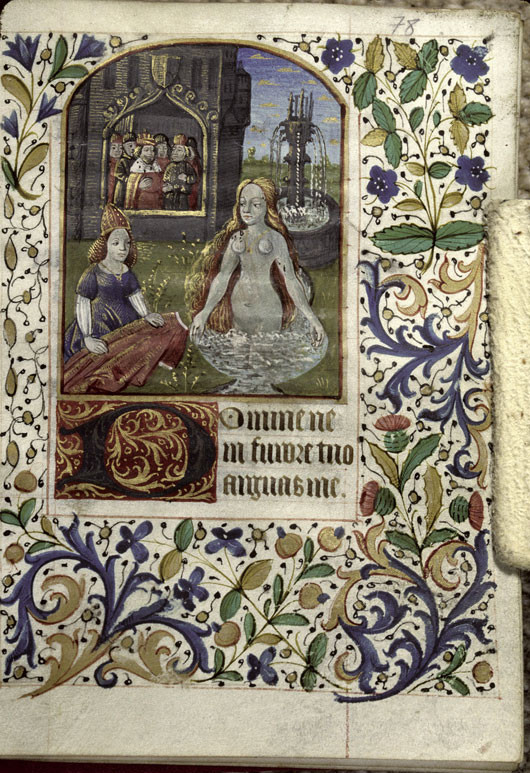 78
Domine ne
in furore tuo
arguas me.